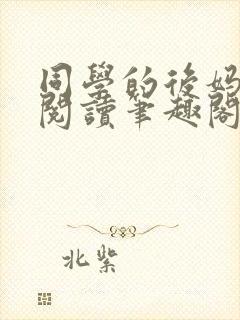 同學的後媽
閱讀筆趣閣
北紫